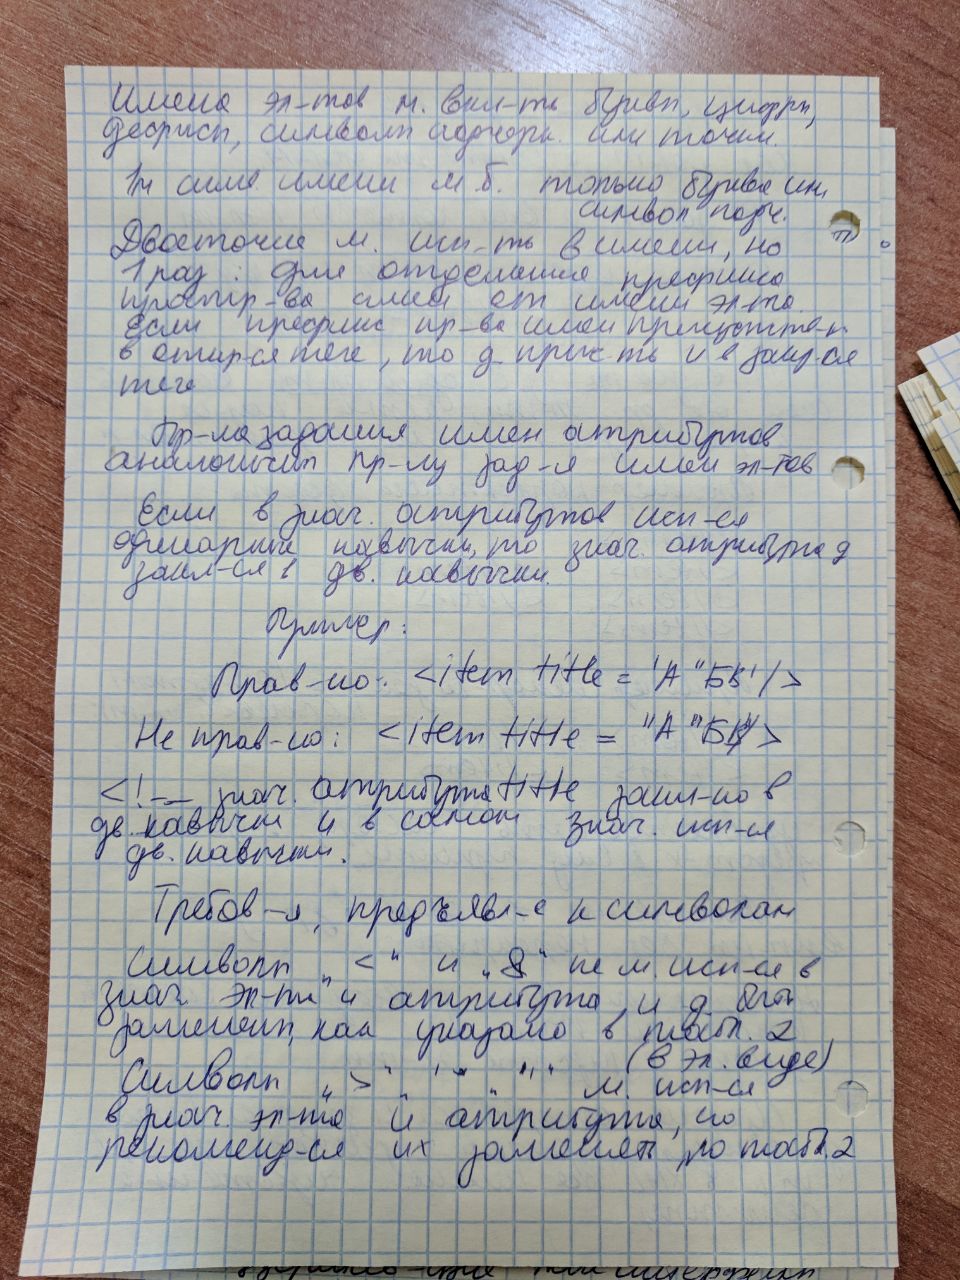 Имена эл-тов м. вкл-ть буквы, цифры,
дефисы, символы подчерк. или точки.
1м симв. имени м.б. только буква или
символ подч.
Двоеточие м. исп-ть в имени, но
1 раз : для отделения префикса
простр-ва имен от имени эл-та.
Если префикс пр-ва имен присутств-т
в откр-ся теге, то д. прис-ть и в закр-ся
теге
Пр-ла задания имен атрибутов
аналогичны пр-лу зад-я имен эл-тов
Если в знач. атрибутов исп-ся
одинарные кавычки, то знач. атрибута д
закл-ся в дв. кавычки.
Пример:
Прав-но: <item title = 'А "БВ'/>
Не прав-но: <item title = "А "БВ"/>
<!-- знач. атрибута title закл-но в
дв. кавычки и в самом знач. исп-ся
дв. кавычки.
Требов-я, предъявл-е к символам
Символы „<" и „&" не м. исп-ся в
знач. эл-та и атрибута, и д. быть
заменены, как указано в табл. 2
(в эл. виде)
Символы „>" ' " м. исп-ся
в знач. эл-та и атрибута, но
рекоменд-ся их заменять по табл. 2